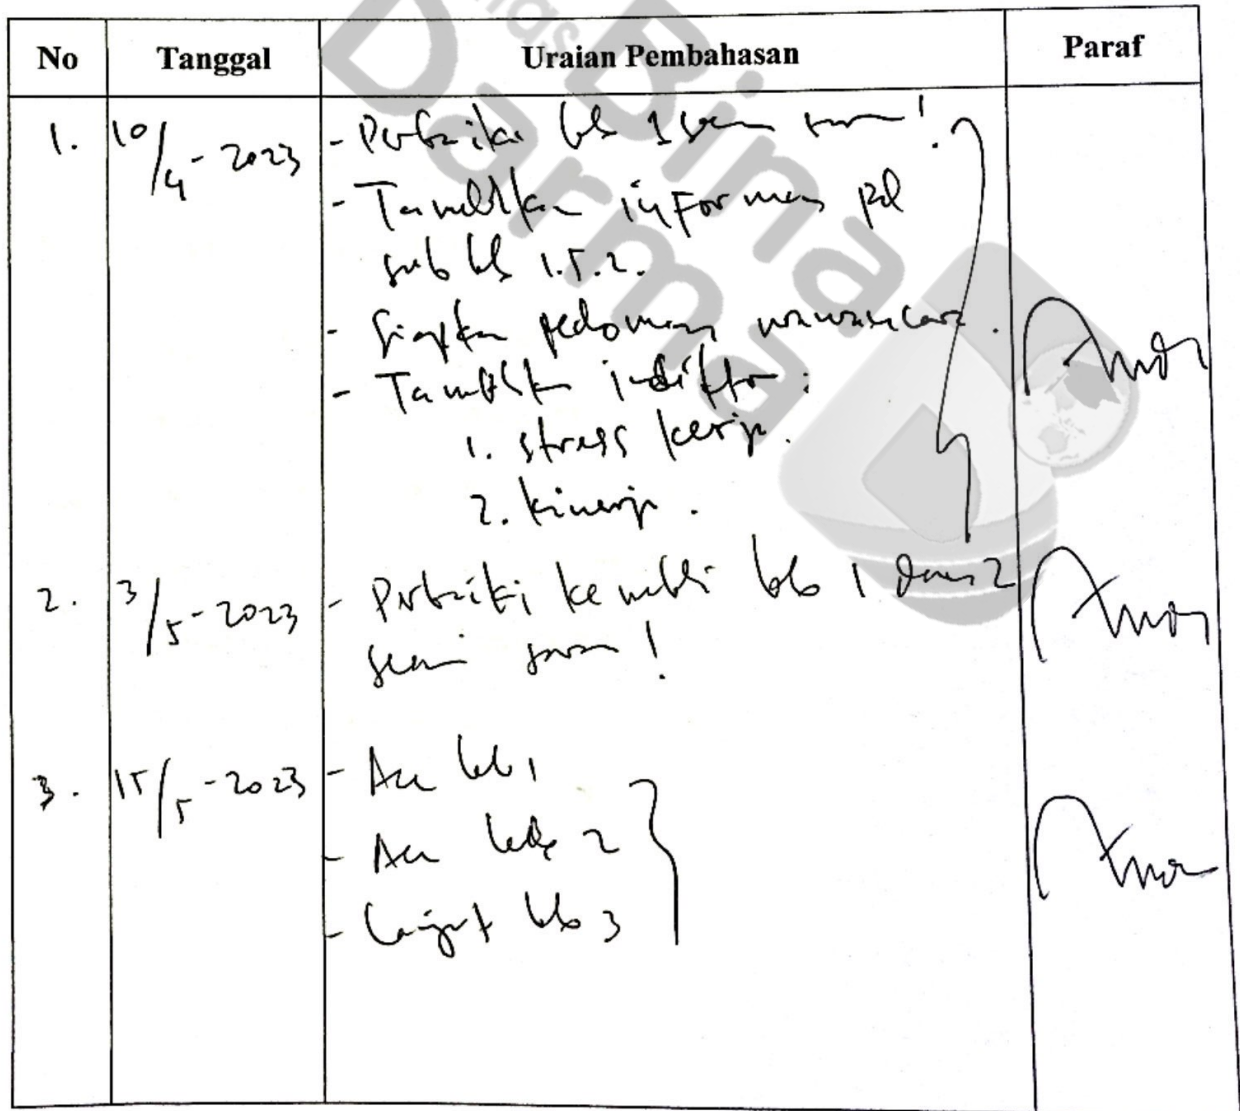 No Tanggal Uraian Pembahasan Paraf
1. 10/4-2023 - Perbaiki bab 1 sesuai saran!
- Tambahkan informasi pd
sub bab 1.5.2.
- Siapkan pedoman wawancara.
- Tambahkan indikator:
1. stress kerja.
2. kinerja.
2. 3/5-2023 - Perbaiki kembali bab 1 dan 2
sesuai saran!
3. 15/5-2023 - Acc bab 1
- Acc bab 2
- Lanjut bab 3
Bina
Darma